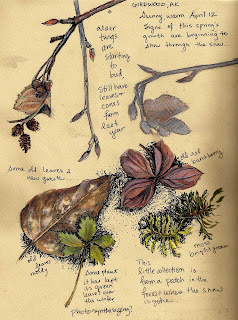 GIRDWOOD, AK
Sunny, warm April 12
Signs of this spring's
growth are beginning to
show through the snow.
alder
twigs
are
starting
to
bud.
Still have
leaves +
cones
from
last
year
Some old leaves &
new growth.
old red
bunchberry
old
brown
moldy
Some plant
it has kept
its green
leaves over
the winter
Photosynthesizing?
moss
bright green
This
little collection is
from a patch in the
forest where the snow
is gone.